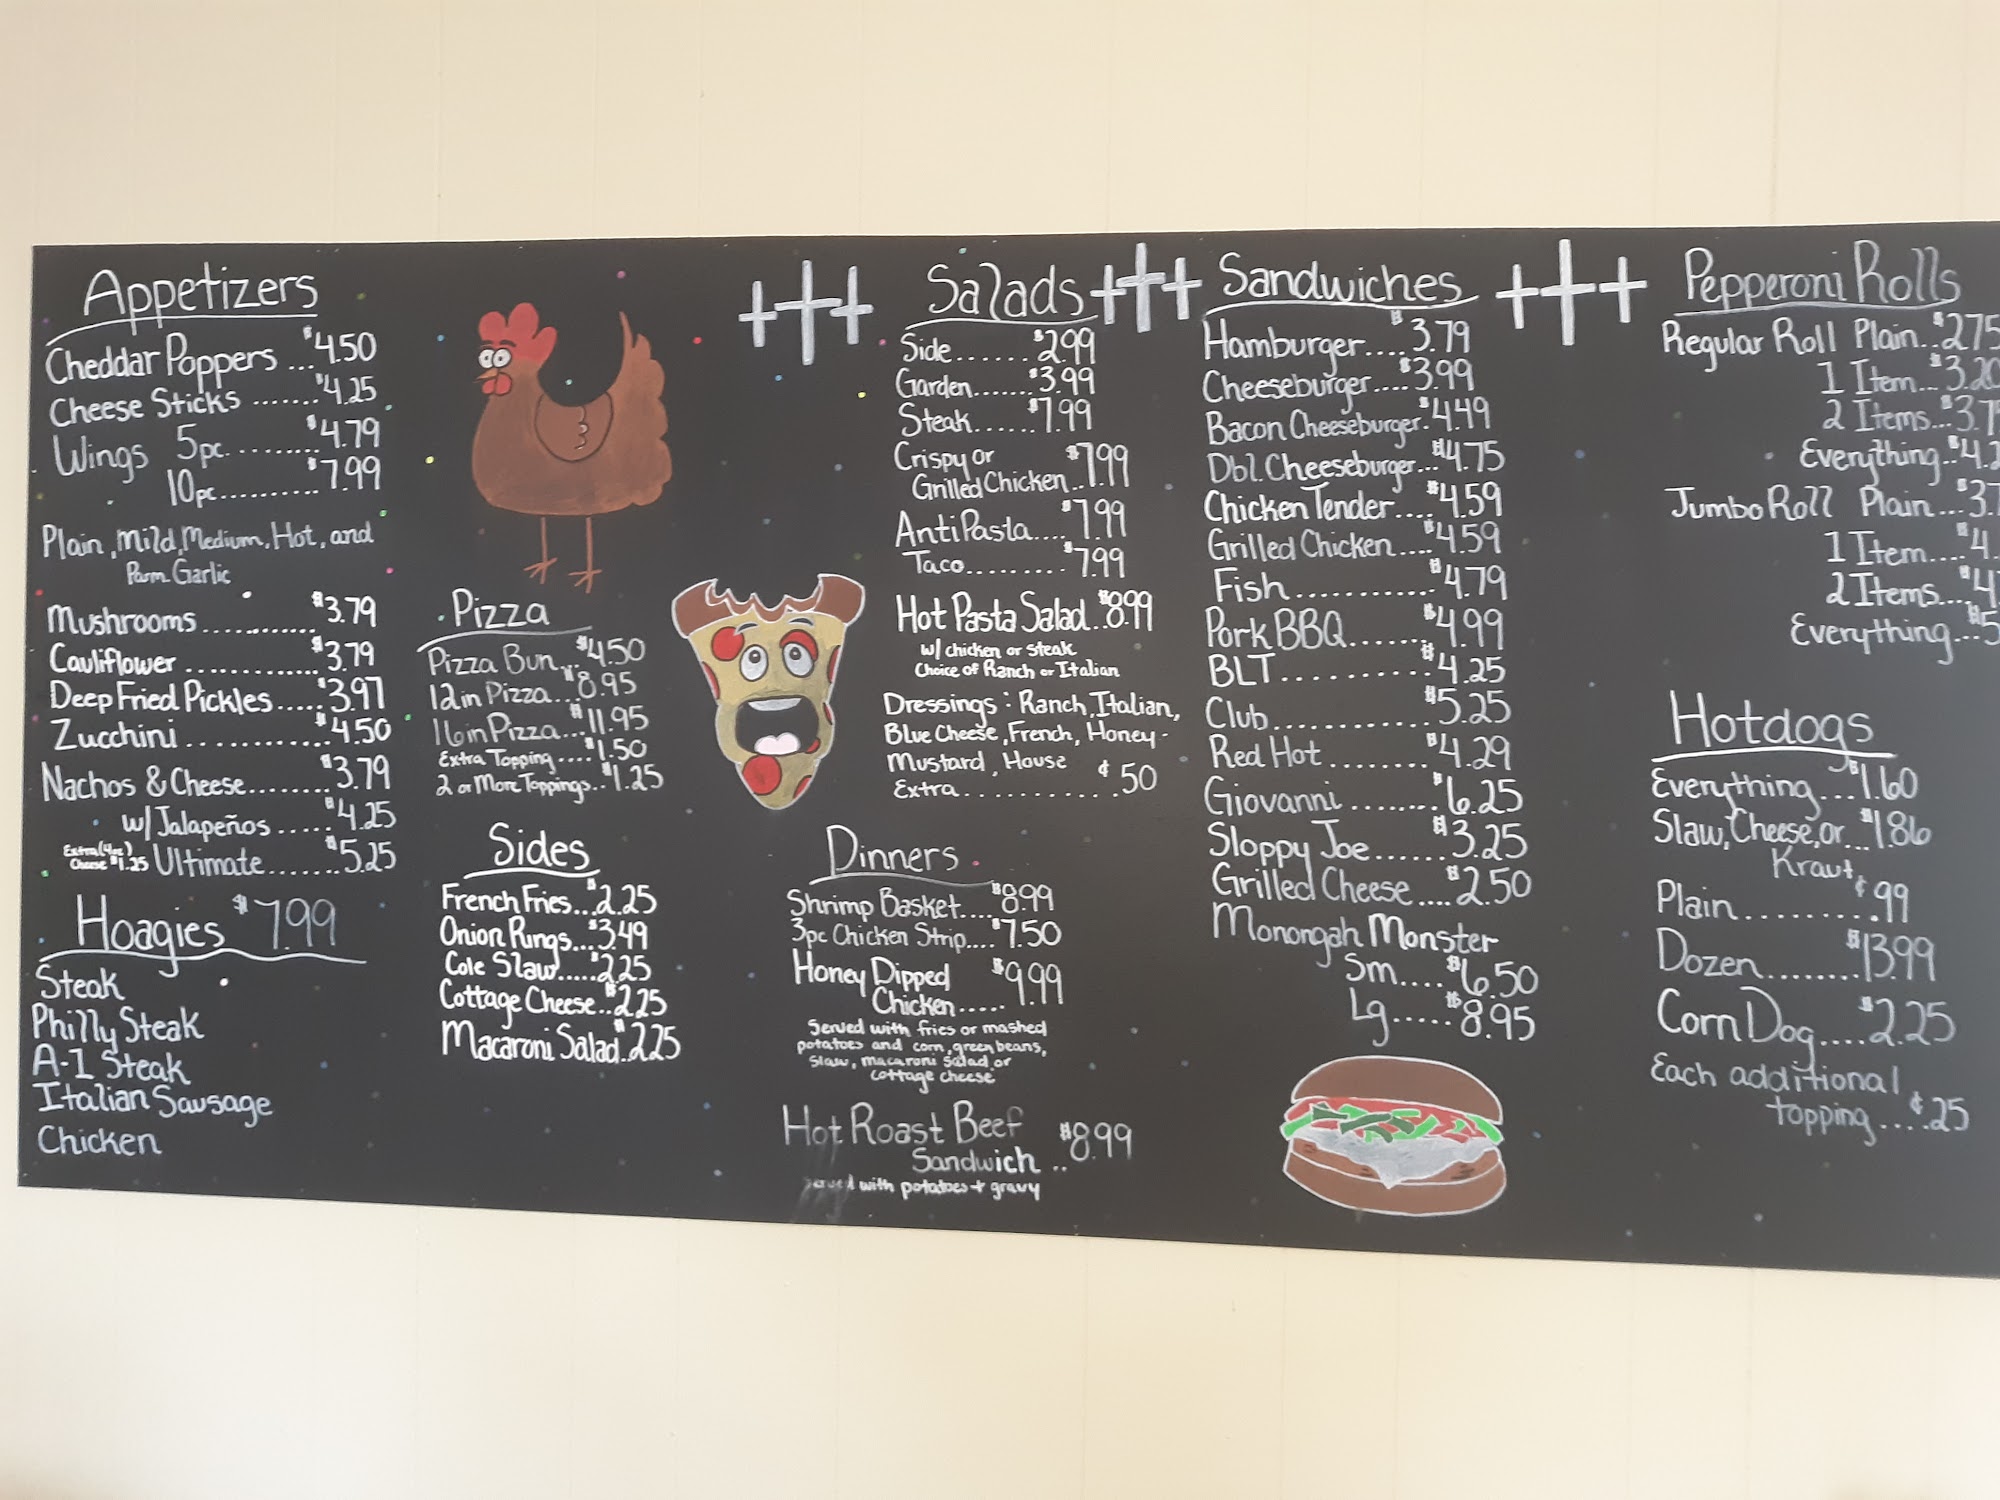 Appetizers
Cheddar Poppers ... $4.50
Cheese Sticks ....... $4.25
Wings 5pc. ......... $4.79
10pc........... $7.99
Plain, Mild, Medium, Hot, and
Parm Garlic
Mushrooms ............ $3.79
Cauliflower ............ $3.79
Deep Fried Pickles..... $3.97
Zucchini ............. $4.50
Nachos & Cheese........ $3.79
w/ Jalapeños ..... $4.25
Extra (4oz)
Cheese $1.25
Ultimate....... $5.25
Hoagies $7.99
Steak
Philly Steak
A-1 Steak
Italian Sausage
Chicken
Pizza
Pizza Bun... $4.50
12in Pizza... $8.95
16in Pizza... $11.95
Extra Topping.... $1.50
2 or More Toppings.. $1.25
Sides
French Fries... $2.25
Onion Rings... $3.49
Cole Slaw..... $2.25
Cottage Cheese.. $2.25
Macaroni Salad. $2.25
Salads
Side...... $2.99
Garden....... $3.99
Steak...... $7.99
Crispy or
Grilled Chicken.. $7.99
AntiPasta.... $7.99
Taco......... $7.99
Hot Pasta Salad.. $8.99
w/ chicken or steak
Choice of Ranch or Italian
Dressings: Ranch, Italian,
Blue Cheese, French, Honey-
Mustard, House
Extra............ ¢.50
Dinners
Shrimp Basket.... $8.99
3pc Chicken Strip.... $7.50
Honey Dipped
Chicken..... $9.99
Served with fries or mashed
potatoes and corn, green beans,
slaw, macaroni salad or
cottage cheese
Hot Roast Beef
Sandwich .. $8.99
served with potatoes + gravy
Sandwiches
Hamburger.... $3.79
Cheeseburger.... $3.99
Bacon Cheeseburger. $4.49
Dbl. Cheeseburger... $4.75
Chicken Tender.... $4.59
Grilled Chicken.... $4.59
Fish ............ $4.79
Pork BBQ....... $4.99
BLT.......... $4.25
Club............ $5.25
Red Hot ........ $4.29
Giovanni ........ $6.25
Sloppy Joe...... $3.25
Grilled Cheese .... $2.50
Monongah Monster
Sm.... $6.50
Lg..... $8.95
Pepperoni Rolls
Regular Roll Plain.. $2.75
1 Item... $3.20
2 Items... $3.7
Everything.. $4.
Jumbo Roll Plain... $3.
1 Item.... $4.
2 Items.... $4.
Everything... $5
Hotdogs
Everything... $1.60
Slaw, Cheese, or ... $1.86
Kraut
Plain.......... ¢.99
Dozen........ $13.99
Corn Dog.... $2.25
Each additional
topping.... ¢.25